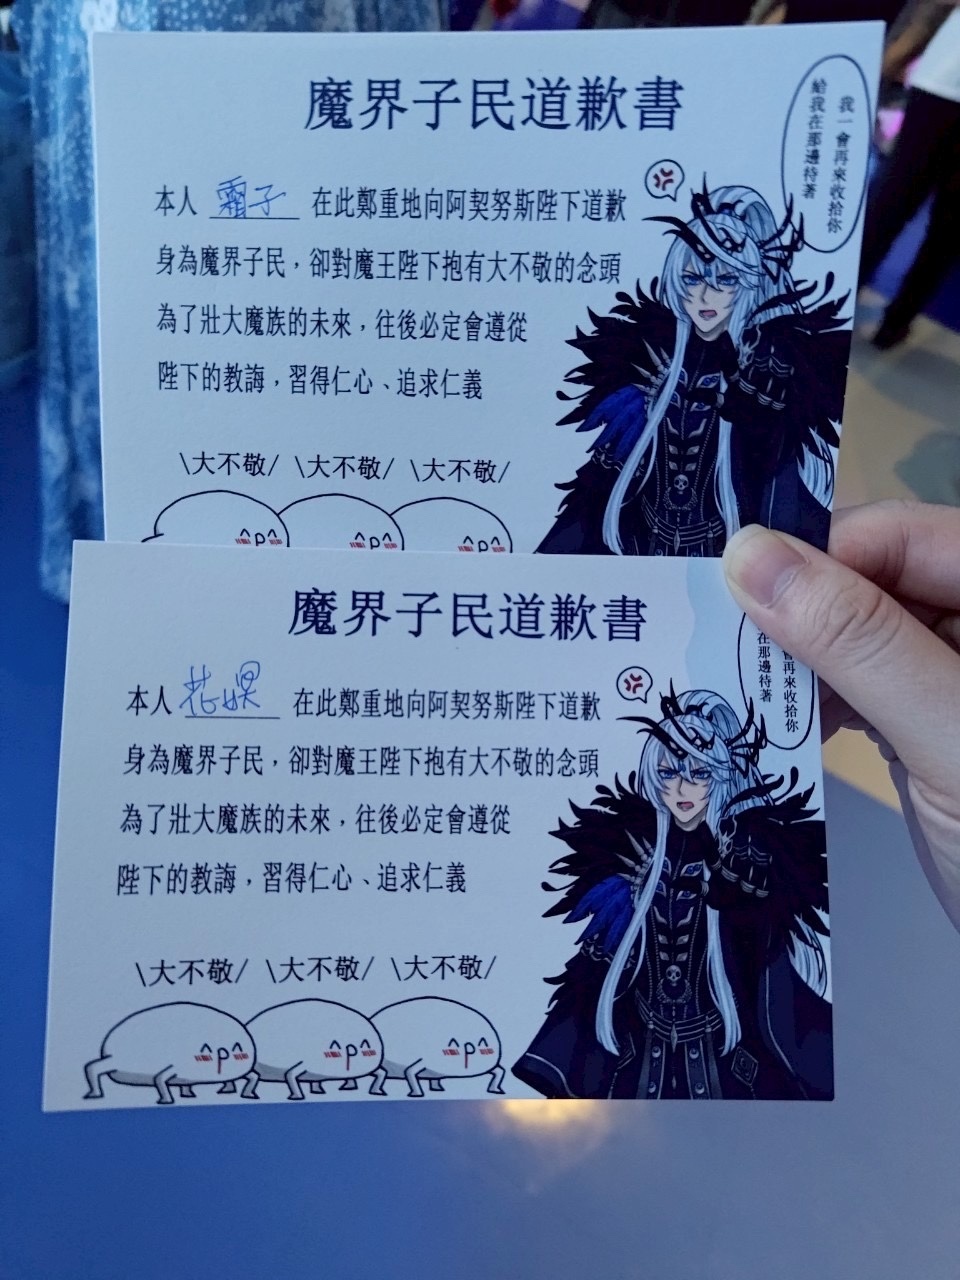 魔界子民道歉書
我一會再來收拾你
給我在那邊待著
本人 霜子 在此鄭重地向阿契努斯陛下道歉
身為魔界子民，卻對魔王陛下抱有大不敬的念頭
為了壯大魔族的未來，往後必定會遵從
陛下的教誨，習得仁心、追求仁義
\大不敬/ \大不敬/ \大不敬/
魔界子民道歉書
會再來收拾你
在那邊待著
本人 花娛 在此鄭重地向阿契努斯陛下道歉
身為魔界子民，卻對魔王陛下抱有大不敬的念頭
為了壯大魔族的未來，往後必定會遵從
陛下的教誨，習得仁心、追求仁義
\大不敬/ \大不敬/ \大不敬/